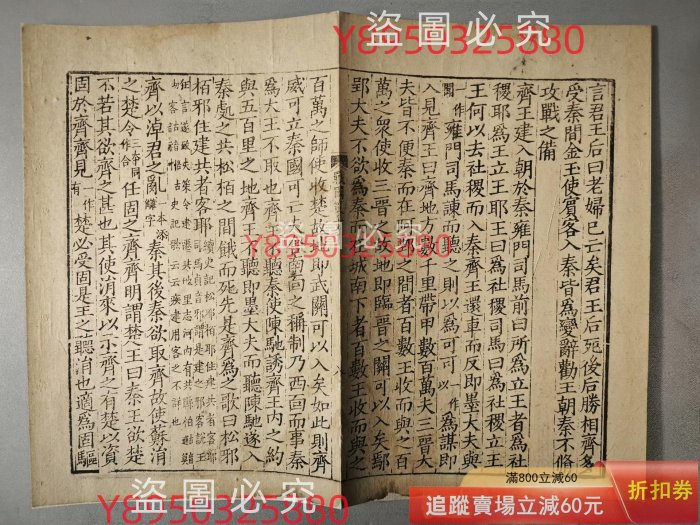 言君王后曰老婦已亡矣君王后死後后勝相齊多
受秦間金玉使賓客入秦皆爲變辭勸王朝秦不脩
攻戰之備
齊王建入朝於秦雍門司馬前曰所爲立王者爲社
稷耶爲王立王耶王曰爲社稷司馬曰爲社稷立王
王何以去社稷而入秦齊王還車而反即墨大夫與
一作聞雍門司馬諫而聽之則以爲可可以一作爲謀即
入見齊王曰齊地方數千里帶甲數百萬夫三晉大
夫皆不便秦而在阿鄄之間者百數王收而與之百
萬之衆使收三晉之故地即臨晉之關可以入矣鄢
郢大夫不欲爲秦而在城南下者百數王收而與之
百萬之師使收楚故地即武關可以入矣如此則齊
威可立秦國可亡夫舍南面之稱制乃西面而事秦
爲大王不取也齊王不聽秦使陳馳誘齊王内之約
與五百里之地齊王不聽即墨大夫而聽陳馳遂入
秦處之共松栢之間餓而死先是齊爲之歌曰松邪
栢邪住建共者客耶
齊以淖君之亂一本添讎字秦其後秦欲取齊故使蘇涓
之楚令三本同作合任固之齊齊明謂楚王曰秦王欲楚
不若其欲齊之甚也其使涓來以示齊之有楚以資
固於齊齊見一作有楚必受固是王之聽涓也適爲固驅
盜圖必究
Y8950325880
盜圖必究
Y8950325880
盜圖必究
Y8950325880
滿800立減60
追蹤賣場立減60元
折扣券